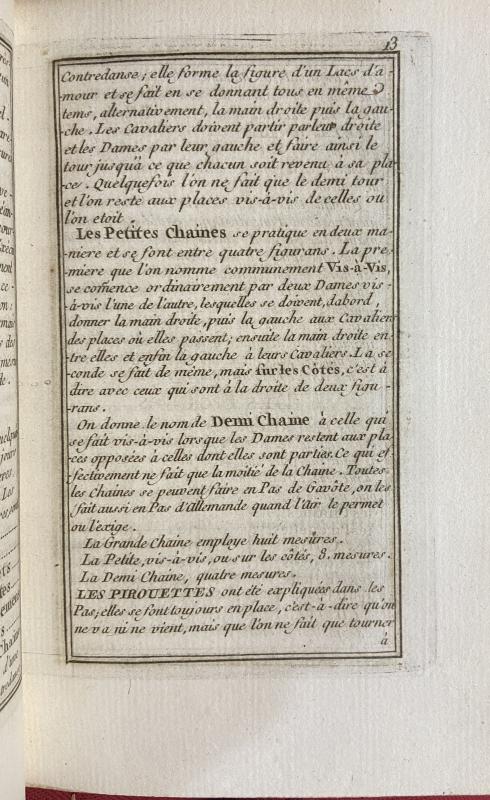 13
Contredanse; elle forme la figure d'un Lacs d'a-
mour et se fait en se donnant tous en même
tems, alternativement, la main droite puis la gau-
che. Les Cavaliers doivent partir par leur droite
et les Dames par leur gauche et faire ainsi le
tour jusqu'à ce que chacun soit revenu à sa pla-
-ce. Quelquefois l'on ne fait que le demi tour
et l'on reste aux places vis-à-vis de celles ou
l'on etoit.
Les Petites Chaines se pratique en deux ma-
niere et se font entre quatre figurans. La pre-
miere que l'on nomme communement Vis-à-Vis,
se comence ordinairement par deux Dames vis-
-à-vis l'une de l'autre, lesquelles se doivent, dabord,
donner la main droite, puis la gauche aux Cavaliers
des places où elles passent; ensuite la main droite en-
-tre elles et enfin la gauche à leurs Cavaliers. La se-
conde se fait de même, mais sur les Côtés, c'est à
dire avec ceux qui sont à la droite de deux figu-
-rans.
On donne le nom de Demi Chaine à celle qui
se fait vis-à-vis lorsque les Dames restent aux pla-
ces opposées à celles dont elles sont parties. Ce qui ef-
-fectivement ne fait que la moitié de la Chaine. Toutes
les Chaines se peuvent faire en Pas de Gavôte, on les
fait aussi en Pas d'Allemande quand l'Air le permet
ou l'exige.
La Grande Chaine employe huit mesures.
La Petite, vis-à-vis, ou sur les côtés, 8. mesures.
La Demi Chaine, quatre mesures.
LES PIROUETTES ont été expliquées dans les
Pas; elles se font toujours en place, c'est-à-dire qu'on
ne va ni ne vient, mais que l'on ne fait que tourner
à